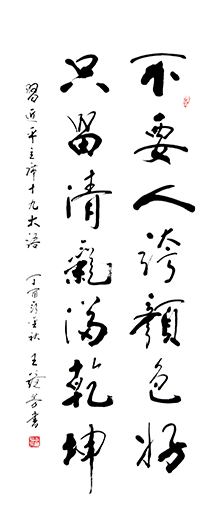 不要人誇顏色好
只留清氣滿乾坤
習近平主席十九大語 丁酉金秋 王芳書